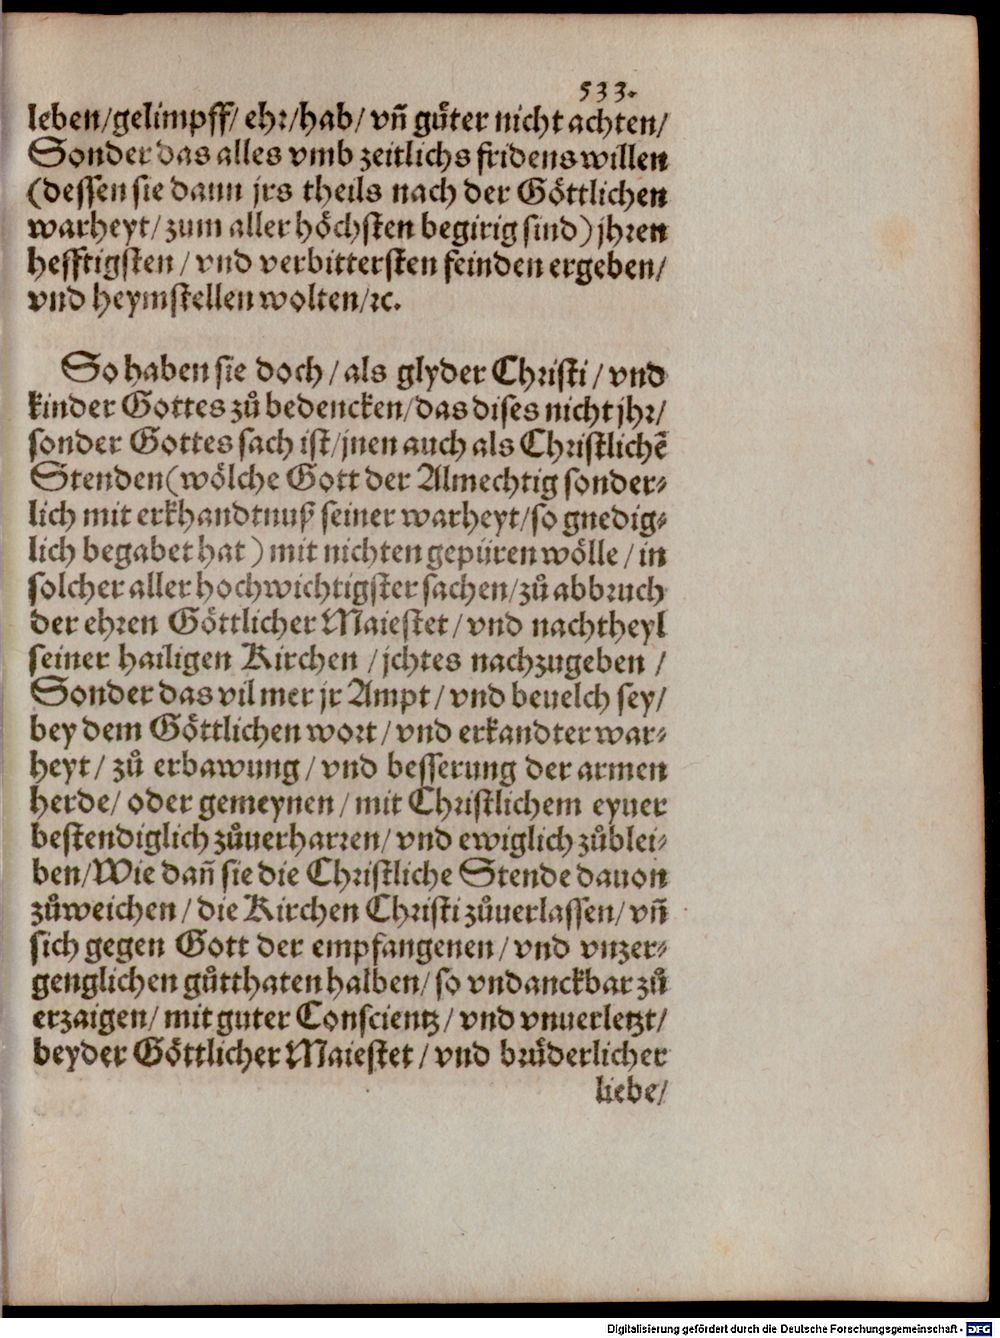 533.
leben/gelimpff/ ehr/hab/ vñ guͤter nicht achten/
Sonder das alles vmb zeitlichs fridens willen
(dessen sie dann jrs theils nach der Göttlichen
warheyt/ zum aller höchsten begirig sind) jhren
hefftigsten / vnd verbittersten feinden ergeben/
vnd heymstellen wolten/ꝛc.
So haben sie doch / als glyder Christi / vnd
kinder Gottes zů bedencken/das dises nicht jhr/
sonder Gottes sach ist/jnen auch als Christlichẽ
Stenden(wölche Gott der Almechtig sonder⸗
lich mit erkhandtnuß seiner warheyt/so gnedig⸗
lich begabet hat ) mit nichten gepüren wölle / in
solcher aller hochwichtigster sachen/zů abbruch
der ehren Göttlicher Maiestet / vnd nachtheyl
seiner hailigen Kirchen / jchtes nachzugeben /
Sonder das vil mer jr Ampt / vnd beuelch sey/
bey dem Göttlichen wort / vnd erkandter war⸗
heyt / zů erbawung / vnd besserung der armen
herde/ oder gemeynen / mit Christlichem eyuer
bestendiglich zůuerharren/ vnd ewiglich zůblei⸗
ben/Wie dañ sie die Christliche Stende dauon
zůweichen / die Kirchen Christi zůuerlassen/ vñ
sich gegen Gott der empfangenen / vnd vnzer⸗
genglichen gůtthaten halben/ so vndanckbar zů
erzaigen/ mit guter Conscientz / vnd vnuerletzt/
beyder Göttlicher Maiestet / vnd bruͤderlicher
liebe/
Digitalisierung gefördert durch die Deutsche Forschungsgemeinschaft - DFG